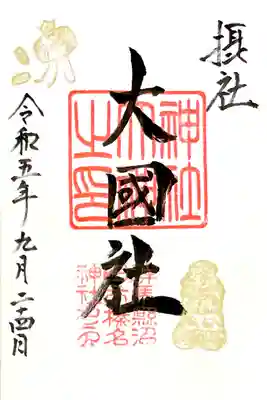 摂社
大國社
令和五年九月二十四日
神社
之印
馬縣沼
榛名
神社